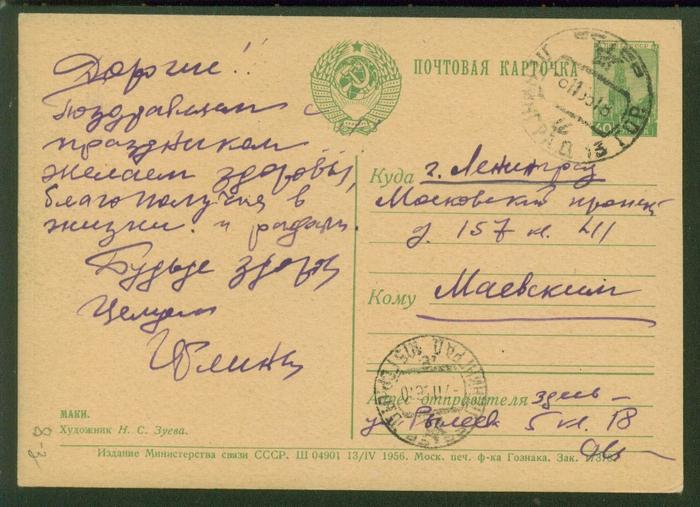 Дорогие!!
Поздравляем с
праздником
желаем здоровья,
благополучия в
жизни и радости.
Будьте здоровы
Целуем
ПОЧТОВАЯ КАРТОЧКА
Куда г. Ленинград
Московский проспект
д. 157 кв. 411
Кому Маевским
Адрес отправителя здесь –
у. Рылеева 5 кв. 18
МАКИ.
Художник Н. С. Зуева.
8-3
Издание Министерства связи СССР. Ш 04901 13/IV 1956. Моск. печ. ф-ка Гознака. Зак.